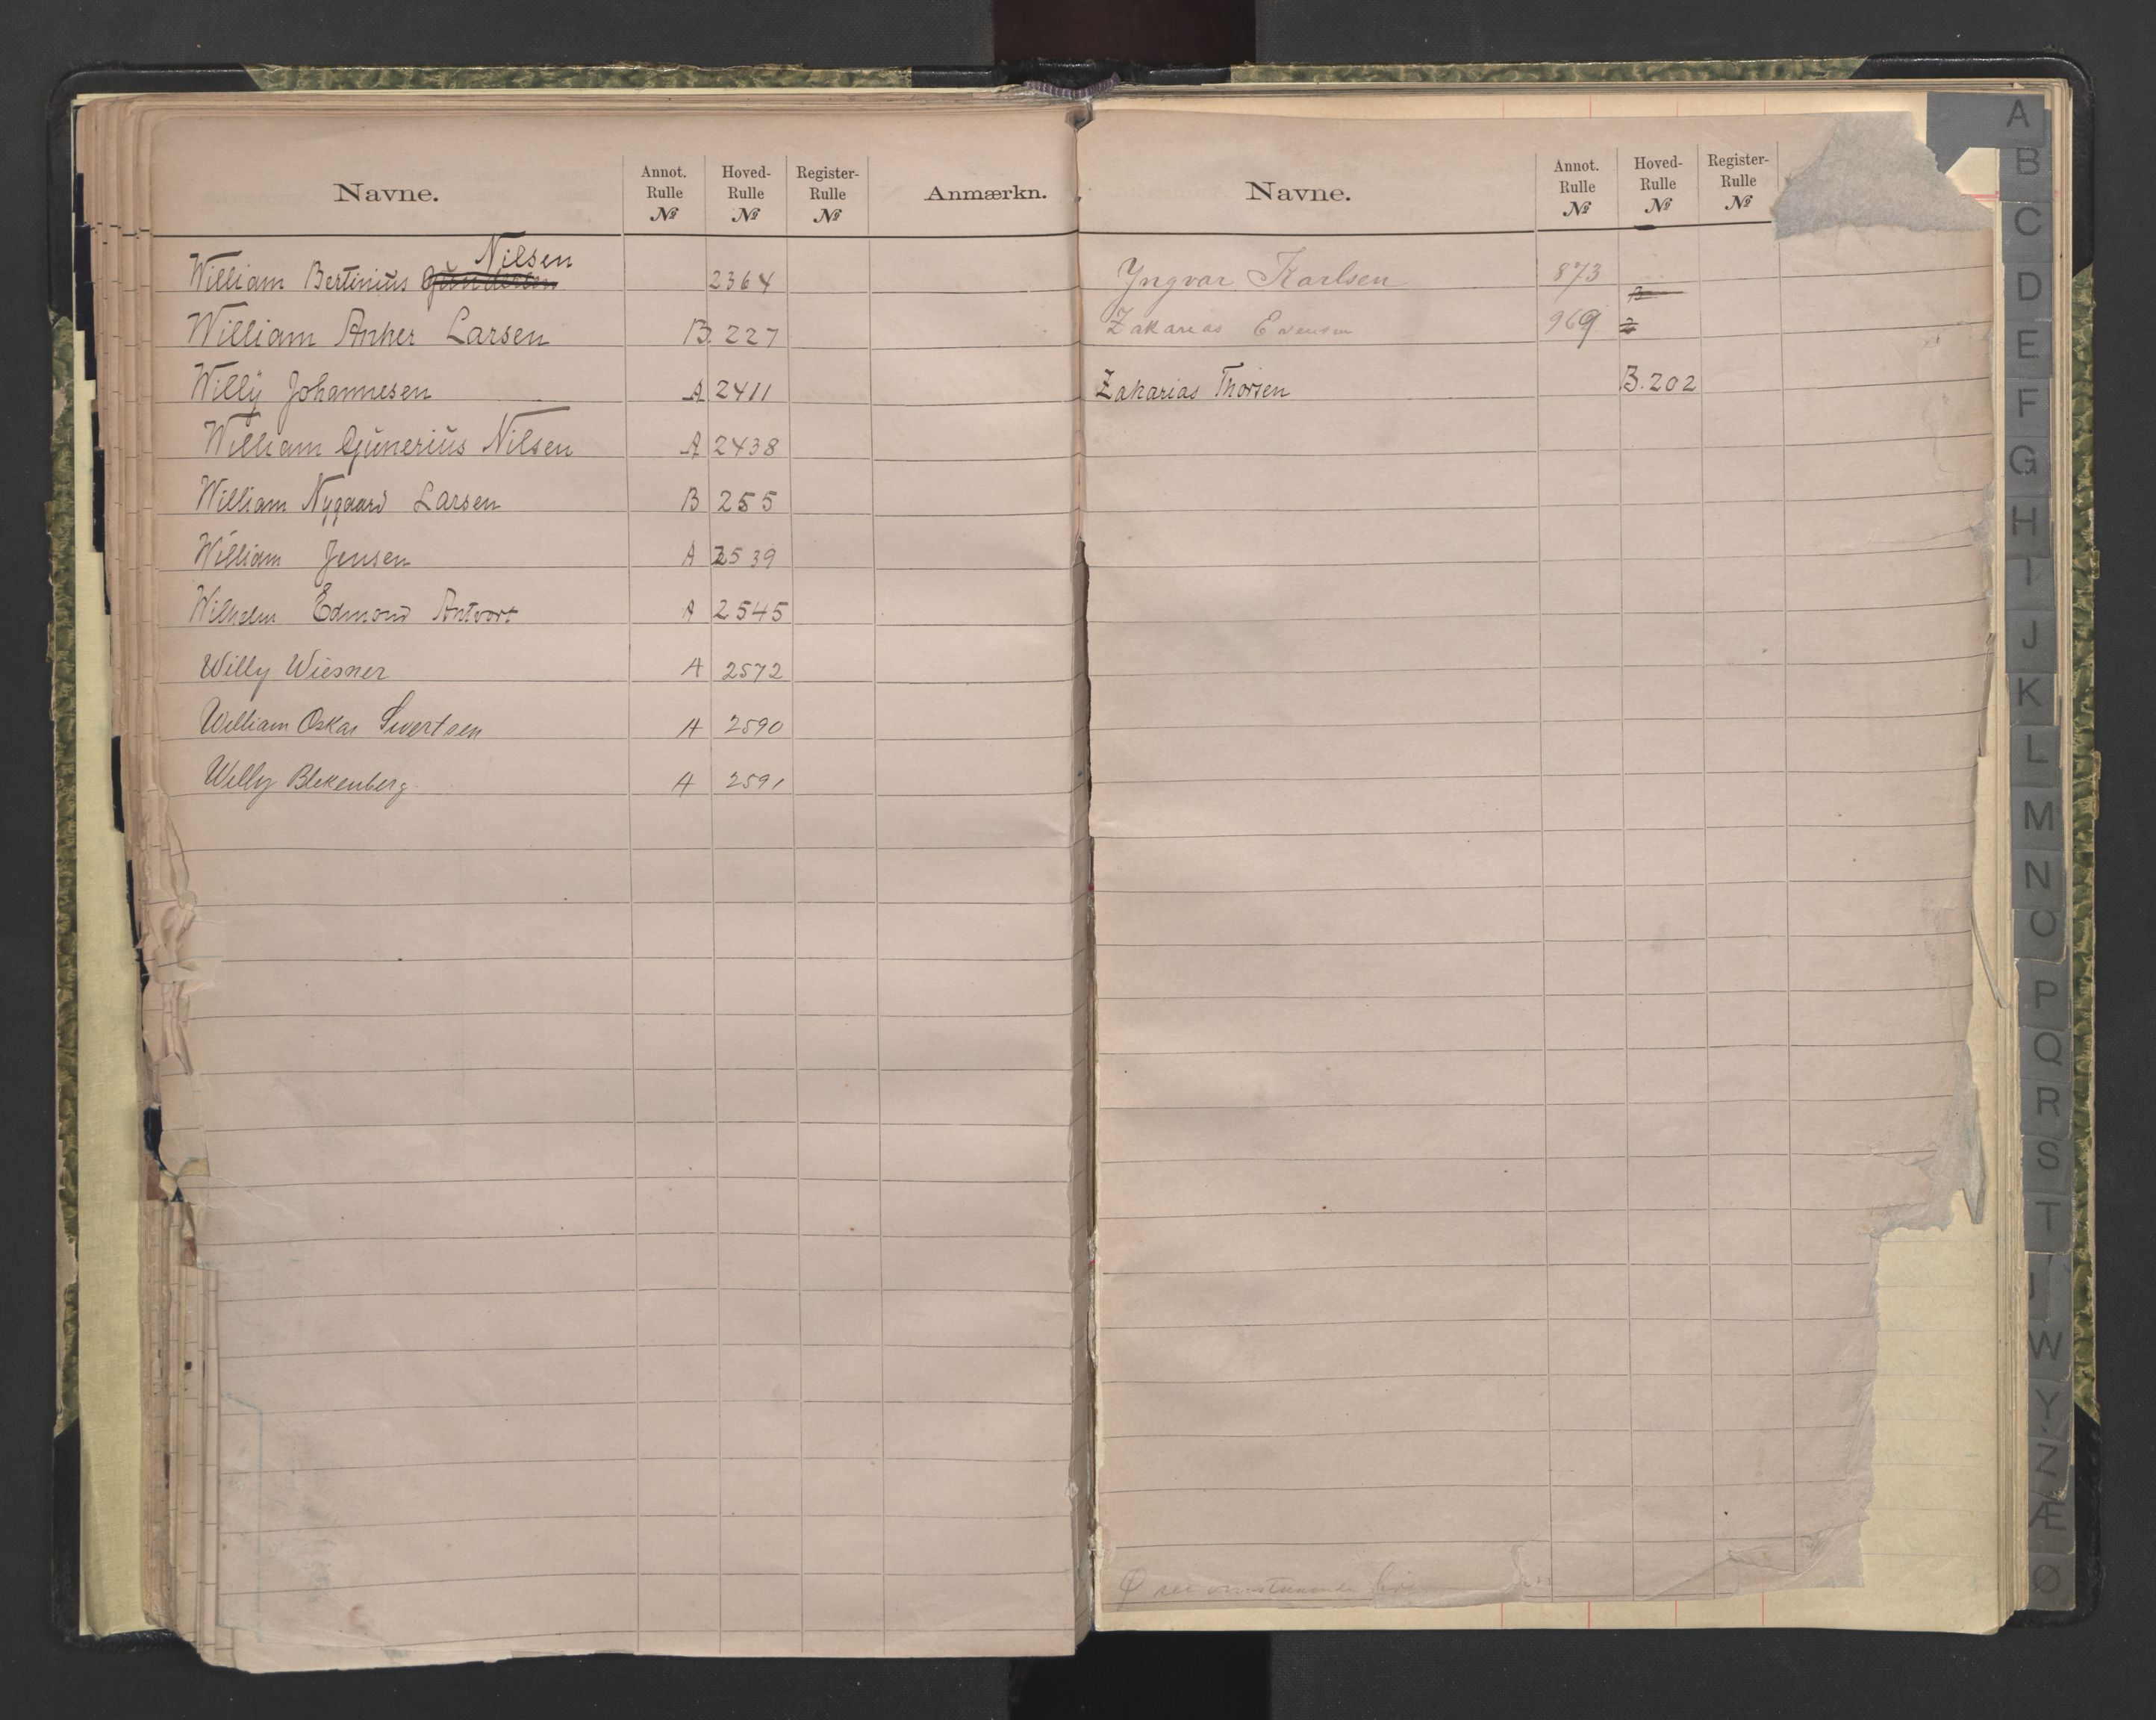 Navne.
Annot. Rulle №
Hoved- Rulle №
Register- Rulle №
Anmærkn.
Nilsen
William Bertinius 2364
William Anker Larsen B. 227
Willy Johannesen A 2411
William Gunerius Nilsen A 2438
William Nygaard Larsen B 255
William Jensen A 2539
Wilhelm Edmond Antvort A 2545
Willy Wiesner A 2572
William Oskar Sivertsen A 2590
Willy Blekenberg A 2591
Navne.
Annot. Rulle №
Hoved- Rulle №
Register- Rulle №
Yngvar Karlsen 873
Zakarias Evensen 969
Zakarias Thorsen B. 202
Ø see omstaaende Side
A
B
C
D
E
F
G
H
I
J
K
L
M
N
O
P
Q
R
S
T
W
Y
Z
Æ
Ø